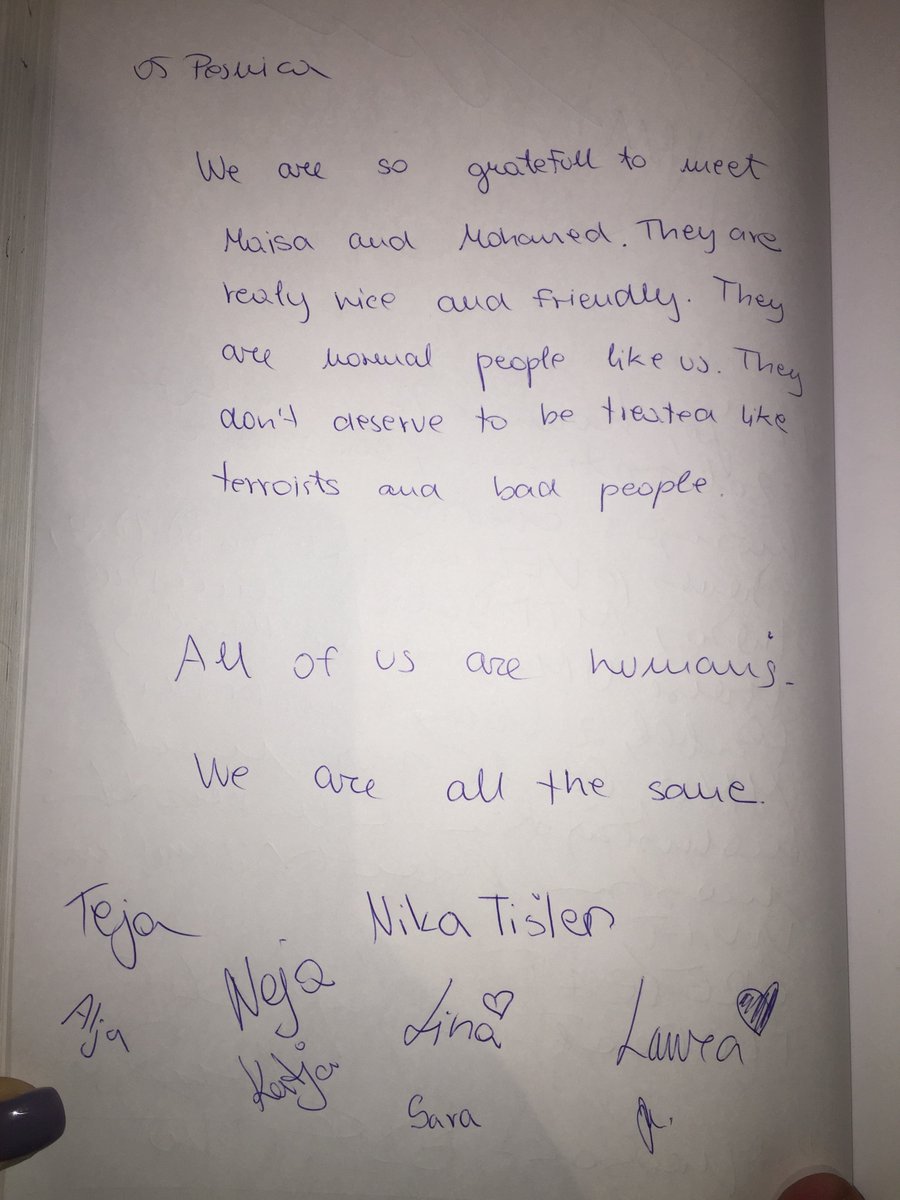 OŠ Pesnica
We are so gratefull to meet
Maisa and Mohamed. They are
realy nice and friendly. They
are normal people like us. They
don't deserve to be treated like
terroists and bad people.
All of us are humans.
We are all the same.
Teja Nika Tišler
Neja
Alja Lina Laura
Katja
Sara